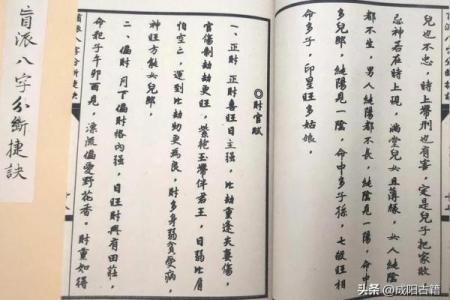 兒也不忠，時上帶刑也有害，定是兒子把家敗
忌神若在時上現，滿堂兒女且薄緣，女人純陰
都不生，男人純陽都不長，純陰見一陽，命中
多兒郎，純陽見一陰，命中多子孫，七殺旺相
命多子，印星旺多姑娘，
◎財官賦
一、正財 正財喜旺日主强，比劫重逢夫妻傷，
官傷制劫財更旺，紫袍玉帶伴君王，日弱比肩
怕空亡，運到比劫更為良，財多身弱貧愛病，
神旺方能女兒郎，
二、偏財 月下偏財格內强，日旺財興有田莊，
命犯子午卯酉見，漂流偏愛野花香，財重如得
盲派八字分斷捷訣
头条 @成阳古籍